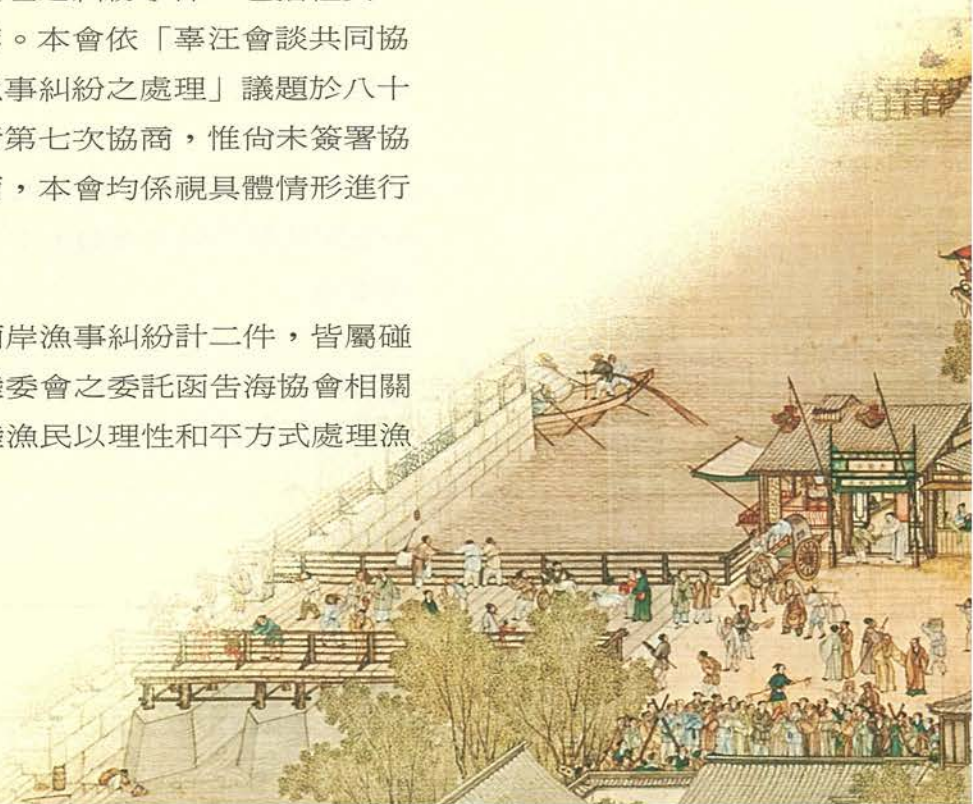 。本會依「辜汪會談共同協
事糾紛之處理」議題於八十
第七次協商，惟尚未簽署協
，本會均係視具體情形進行
岸漁事糾紛計二件，皆屬碰
委會之委託函告海協會相關
漁民以理性和平方式處理漁